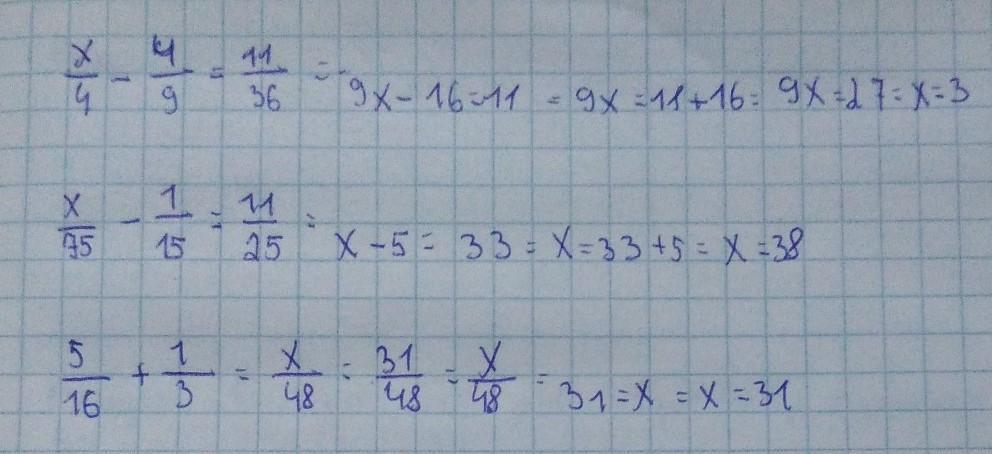 x/4 - 4/9 = 11/36 = 9x - 16 = 11 = 9x = 11 + 16 = 9x = 27 = x = 3
x/75 - 1/15 = 11/25 = x - 5 = 33 = x = 33 + 5 = x = 38
5/16 + 1/3 = x/48 = 31/48 = x/48 = 31 = x = x = 31